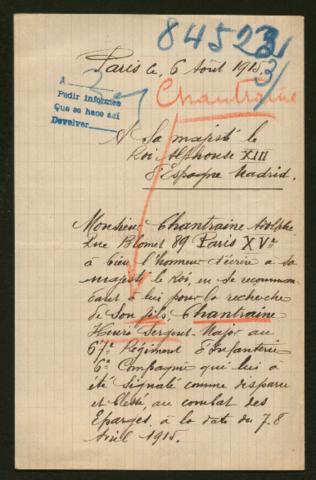 84523/
3/
Paris le, 6 Août 1915.
A
Pedir informes
Que se hace asi
Devolver
Chantraine
A Sa majesté le
Roi Alphonse XIII
d'Espagne Madrid.
Monsieur Chantraine Adolphe
Rue Blomet 89 Paris XVe
a bien l'honneur d'écrire à sa
majesté le Roi, en se recomman
dant à lui pour la recherche
de son fils, Chantraine
Henri Sergent-Major au
67e Régiment d'Infanterie
6e Compagnie qui lui a
été signalé comme disparu
et blessé, au combat des
Eparges, à la date du 7.8
Avril 1915.